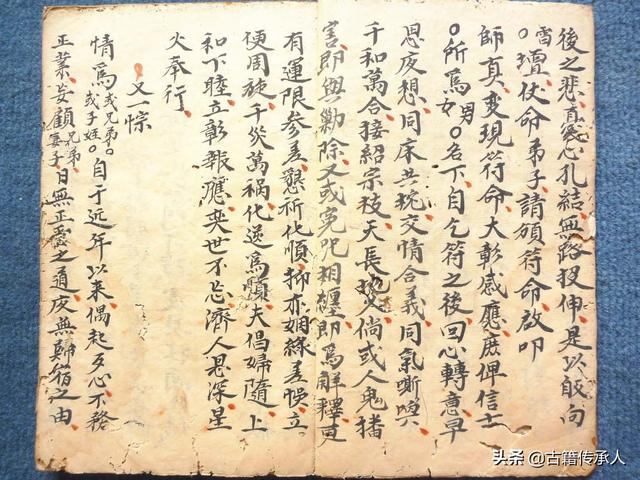 後之悲直寃心孔結無路投伸是以皈向
雷壇伏命弟子請頒符命啟叩
師真变現符命大彰感應庶俾信士
所爲男女名下自乞符之後回心轉意早
思夜想同床共枕交情合義同氣
千和萬合接紹宗枝天長地久倘或人鬼播
害即與勦除又或寃咒相纏即爲解釋更
有運限参差懇祈化順抑亦姻緣差悞立
便周旋千災萬禍化逆爲順夫倡婦隨上
和下睦立彰報應奕世不忘濟人恩深星
火奉行
又一宗
情爲或兄弟或子姪自于近年以來偶起歹心不務
正業妄顧兄弟妻子日無正愛之道夜無歸宿之由
头条 @古籍传承人